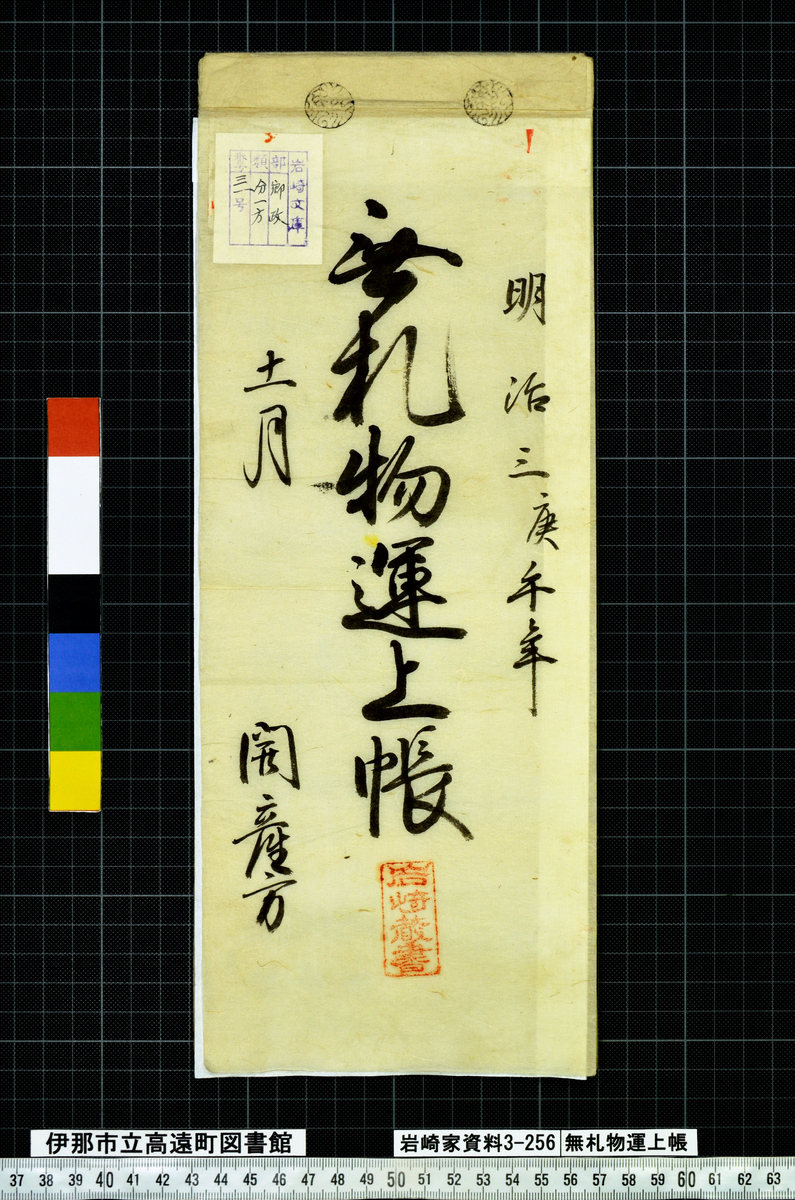 明治三庚午年
無札物運上帳
十一月
開産方
岩崎蔵書
岩崎文庫
部 郷政
類 分一方
号
伊那市立高遠町図書館
岩崎家資料3-256
無札物運上帳
37 38 39 40 41 42 43 44 45 46 47 48 49 50 51 52 53 54 55 56 57 58 59 60 61 62 63